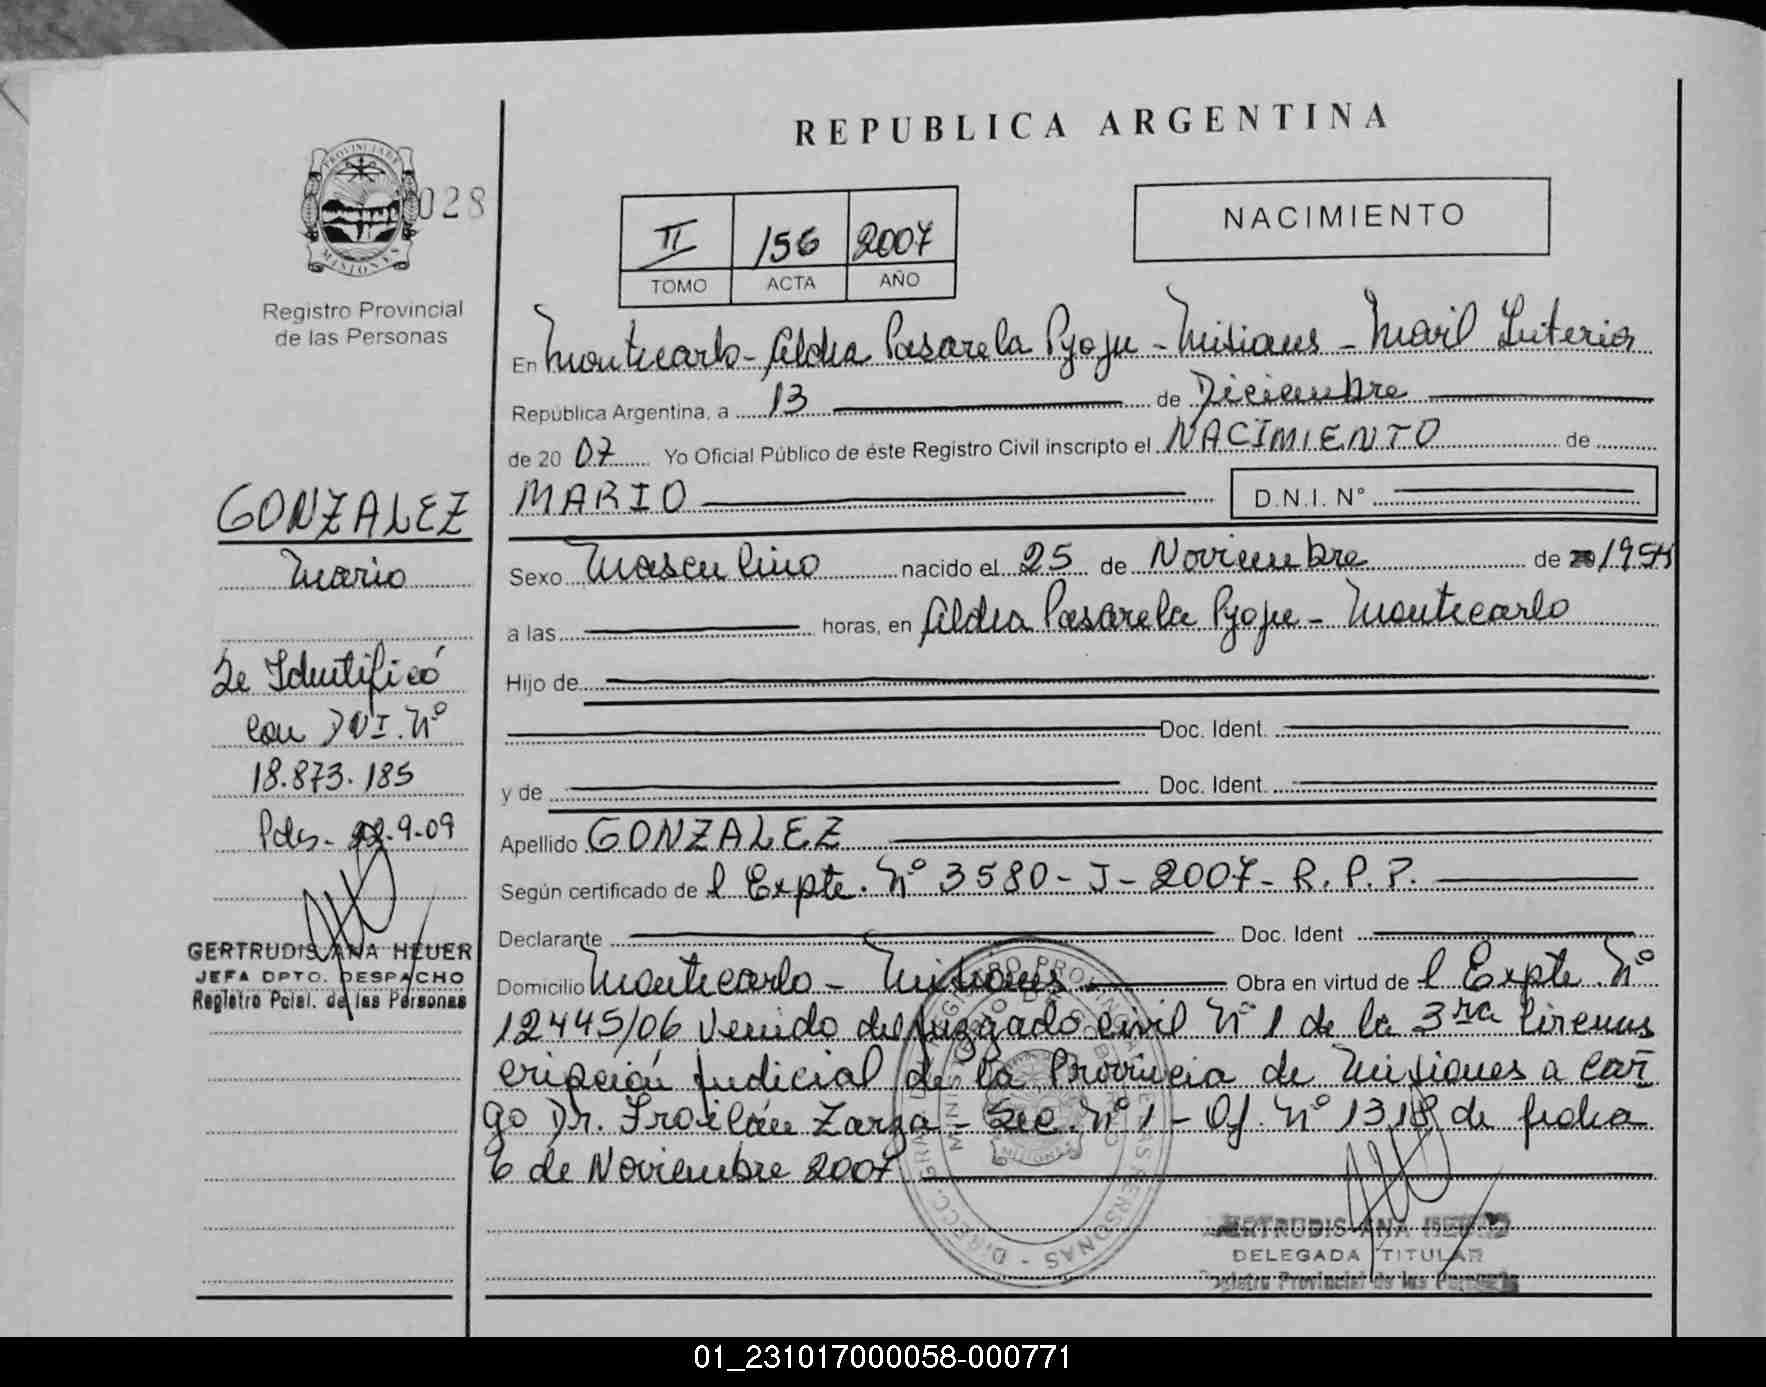 REPUBLICA ARGENTINA
PROVINCIA DE
MISIONES
028
Registro Provincial
de las Personas
II 156 2007
TOMO ACTA AÑO
NACIMIENTO
En Montecarlo - Aldea Pasarela Pyoju - Misiones - Movil Interior
República Argentina, a 13 de Diciembre
de 20 07 Yo Oficial Público de éste Registro Civil inscripto el NACIMIENTO de
MARIO D.N.I. N°
Sexo Masculino nacido el 25 de Noviembre de 1954
a las horas, en Aldea Pasarela Pyoju - Montecarlo
Hijo de
Doc. Ident.
y de Doc. Ident.
Apellido GONZALEZ
Según certificado de l Expte. Nº 3580 - J - 2007 - R. P. P.
Declarante Doc. Ident
Domicilio Montecarlo - Misiones Obra en virtud de l Expte. Nº
12445/06 Venido del Juzgado Civil Nº 1 de la 3ra Circuns
cripción Judicial de la Provincia de Misiones a car
go Dr. Froilán Zarza - Sec. Nº 1 - Of. Nº 1318 de fecha
6 de Noviembre 2007
GERTRUDIS ANA HEUER
DELEGADA TITULAR
Registro Provincial de las Personas
GONZALEZ
Mario
Se Identificó
con DNI. Nº
18.873.185
Pdas. 22-9-09
GERTRUDIS ANA HEUER
JEFA DPTO. DESPACHO
Registro Pcial. de las Personas
01_231017000058-000771